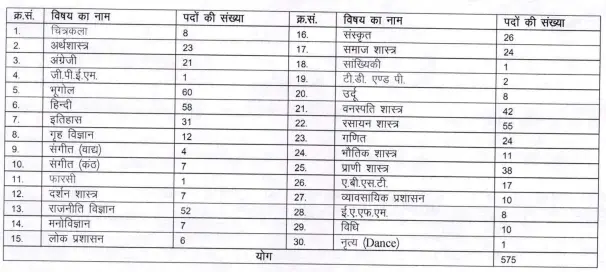 क्र.सं. विषय का नाम पदों की संख्या क्र.सं. विषय का नाम पदों की संख्या
1. चित्रकला 8 16. संस्कृत 26
2. अर्थशास्त्र 23 17. समाज शास्त्र 24
3. अंग्रेजी 21 18. सांख्यिकी 1
4. जी.पी.ई.एम. 1 19. टी.डी. एण्ड पी. 2
5. भूगोल 60 20. उर्दू 8
6. हिन्दी 58 21. वनस्पति शास्त्र 42
7. इतिहास 31 22. रसायन शास्त्र 55
8. गृह विज्ञान 12 23. गणित 24
9. संगीत (वाद्य) 4 24. भौतिक शास्त्र 11
10. संगीत (कंठ) 7 25. प्राणी शास्त्र 38
11. फारसी 1 26. ए.बी.एस.टी. 17
12. दर्शन शास्त्र 7 27. व्यावसायिक प्रशासन 10
13. राजनीति विज्ञान 52 28. ई.ए.एफ.एम. 8
14. मनोविज्ञान 7 29. विधि 10
15. लोक प्रशासन 6 30. नृत्य (Dance) 1
योग 575